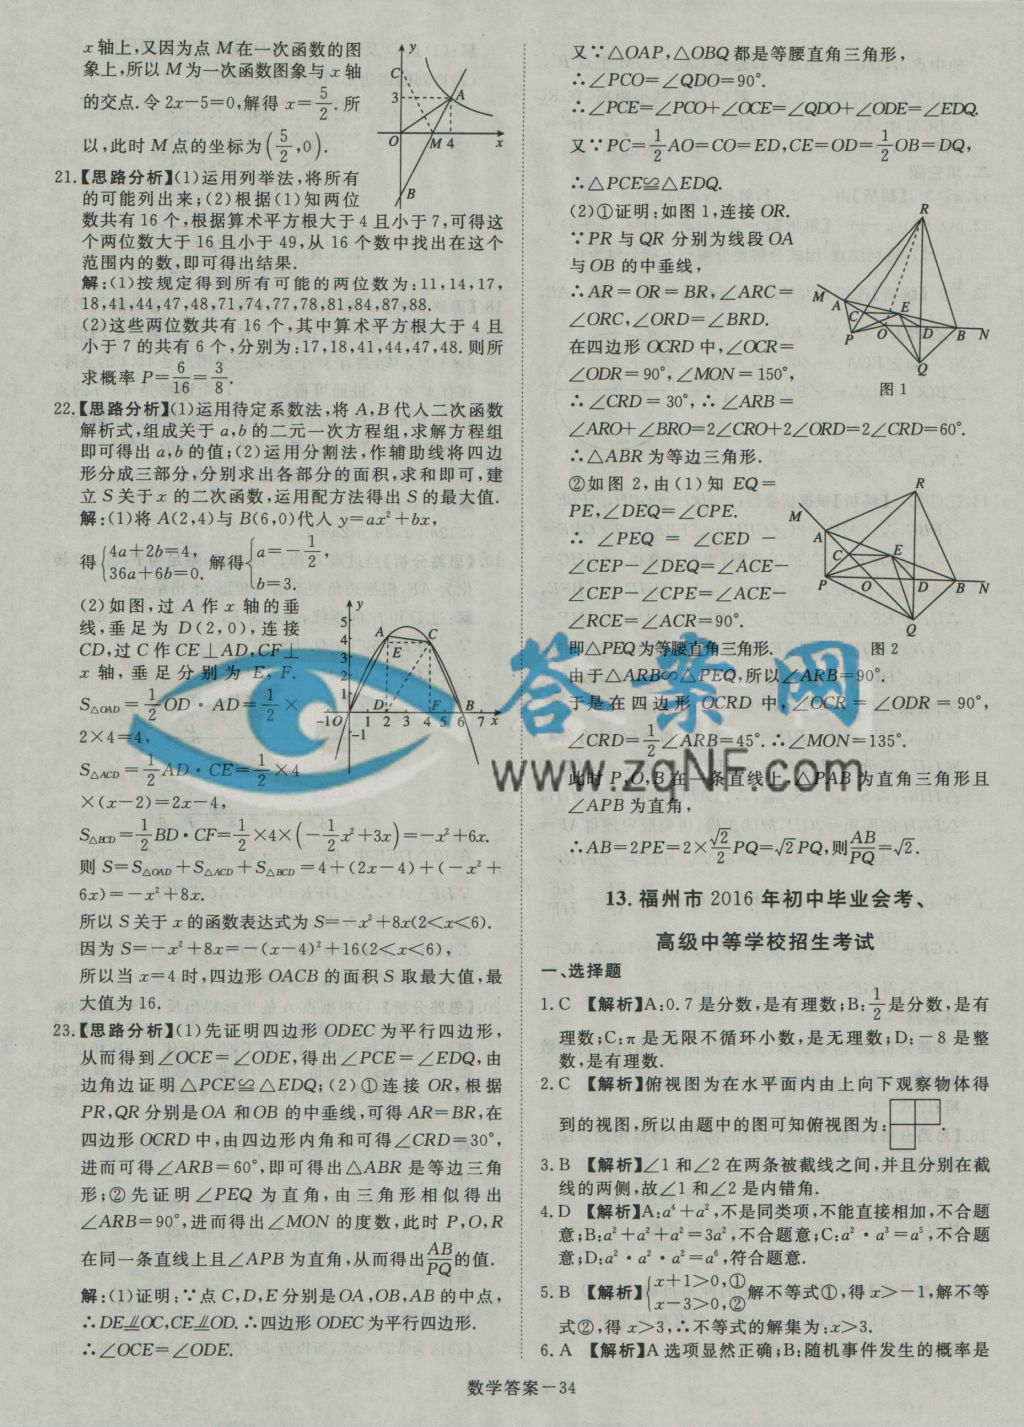 x轴上,又因为点M在一次函数的图
象上,所以M为一次函数图象与x轴
的交点.令2x-5=0,解得x=5/2.所
以,此时M点的坐标为(5/2,0).
y
C
3
A
O
M 4
x
B
21.【思路分析】(1)运用列举法,将所有
的可能列出来;(2)根据(1)知两位
数共有16个,根据算术平方根大于4且小于7,可得这
个两位数大于16且小于49,从16个数中找出在这个
范围内的数,即可得出结果.
解:(1)按规定得到所有可能的两位数为:11,14,17,
18,41,44,47,48,71,74,77,78,81,84,87,88.
(2)这些两位数共有16个,其中算术平方根大于4且
小于7的共有6个,分别为:17,18,41,44,47,48.则所
求概率P=6/16=3/8.
22.【思路分析】(1)运用待定系数法,将A,B代入二次函数
解析式,组成关于a,b的二元一次方程组,求解方程组
即可得出a,b的值;(2)运用分割法,作辅助线将四边
形分成三部分,分别求出各部分的面积,求和即可,建
立S关于x的二次函数,运用配方法得出S的最大值.
解:(1)将A(2,4)与B(6,0)代入y=ax²+bx,
得{4a+2b=4, 36a+6b=0. 解得{a=-1/2, b=3.
(2)如图,过A作x轴的垂
线,垂足为D(2,0),连接
CD,过C作CE⊥AD,CF⊥
x轴,垂足分别为E,F.
S△OAD=1/2OD·AD=1/2×
2×4=4,
S△ACD=1/2AD·CE=1/2×4
×(x-2)=2x-4,
y
5
4
3
2
1
A
C
E
-1 O D F B
1 2 3 4 5 6 7 x
-1
S△BCD=1/2BD·CF=1/2×4×(-1/2x²+3x)=-x²+6x.
则S=S△OAD+S△ACD+S△BCD=4+(2x-4)+(-x²+
6x)=-x²+8x.
所以S关于x的函数表达式为S=-x²+8x(2<x<6).
因为S=-x²+8x=-(x-4)²+16(2<x<6),
所以当x=4时,四边形OACB的面积S取最大值,最
大值为16.
23.【思路分析】(1)先证明四边形ODEC为平行四边形,
从而得到∠OCE=∠ODE,得出∠PCE=∠EDQ,由
边角边证明△PCE≌△EDQ;(2)①连接OR,根据
PR,QR分别是OA和OB的中垂线,可得AR=BR,在
四边形OCRD中,由四边形内角和可得∠CRD=30°,
进而可得∠ARB=60°,即可得出△ABR是等边三角
形;②先证明∠PEQ为直角,由三角形相似得出
∠ARB=90°,进而得出∠MON的度数,此时P,O,R
在同一条直线上且∠APB为直角,从而得出AB/PQ的值.
解:(1)证明:∵点C,D,E分别是OA,OB,AB的中点,
∴DE⊥∥OC,CE⊥∥OD.∴四边形ODEC为平行四边形.
∴∠OCE=∠ODE.
又∵△OAP,△OBQ都是等腰直角三角形,
∴∠PCO=∠QDO=90°.
∴∠PCE=∠PCO+∠OCE=∠QDO+∠ODE=∠EDQ.
又∵PC=1/2AO=CO=ED,CE=OD=1/2OB=DQ,
∴△PCE≌△EDQ.
(2)①证明:如图1,连接OR.
∵PR与QR分别为线段OA
与OB的中垂线,
∴AR=OR=BR,∠ARC=
∠ORC,∠ORD=∠BRD.
在四边形OCRD中,∠OCR=
∠ODR=90°,∠MON=150°,
∴∠CRD=30°,∴∠ARB=
R
M
A
C
E
P
O
D
B
N
Q
图1
∠ARO+∠BRO=2∠CRO+2∠ORD=2∠CRD=60°.
∴△ABR为等边三角形.
②如图2,由(1)知EQ=
PE,∠DEQ=∠CPE.
∴∠PEQ=∠CED-
∠CEP-∠DEQ=∠ACE-
∠CEP-∠CPE=∠ACE-
∠RCE=∠ACR=90°.
即△PEQ为等腰直角三角形.
R
M
A
C
E
P
O
D
B
N
Q
图2
由于△ARB∽△PEQ,所以∠ARB=90°.
于是在四边形OCRD中,∠OCR=∠ODR=90°,
∠CRD=1/2∠ARB=45°.∴∠MON=135°.
此时P,O,B在一条直线上,△PAB为直角三角形且
∠APB为直角,
∴AB=2PE=2×√2/2PQ=√2PQ,则AB/PQ=√2.
13.福州市2016年初中毕业会考、
高级中等学校招生考试
一、选择题
1.C 【解析】A:0.7是分数,是有理数;B:1/2是分数,是有
理数;C:π是无限不循环小数,是无理数;D:-8是整
数,是有理数.
2.C 【解析】俯视图为在水平面内由上向下观察物体得
到的视图,所以由题中的图可知俯视图为:.
3.B 【解析】∠1和∠2在两条被截线之间,并且分别在截
线的两侧,故∠1和∠2是内错角.
4.D 【解析】A:a⁴+a²,不是同类项,不能直接相加,不合题
意;B:a²+a²+a²=3a²,不合题意;C:a²·a³=a⁵,不合题
意;D:a²·a²·a²=a⁶,符合题意.
5.B 【解析】{x+1>0,① x-3>0,② 解不等式①,得x>-1,解不等
式②,得x>3,∴不等式的解集为:x>3.
6.A 【解析】A选项显然正确;B:随机事件发生的概率是
数学答案-34
答案网
www.zqNF.com